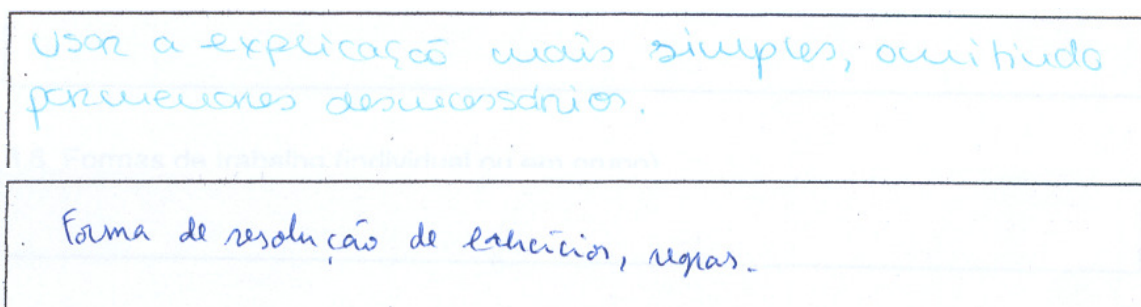 usar a explicação mais simples, omitindo
pormenores desnecessários.
3.8 Formas de trabalho (individual ou em grupo)
Forma de resolução de exercícios, regras.